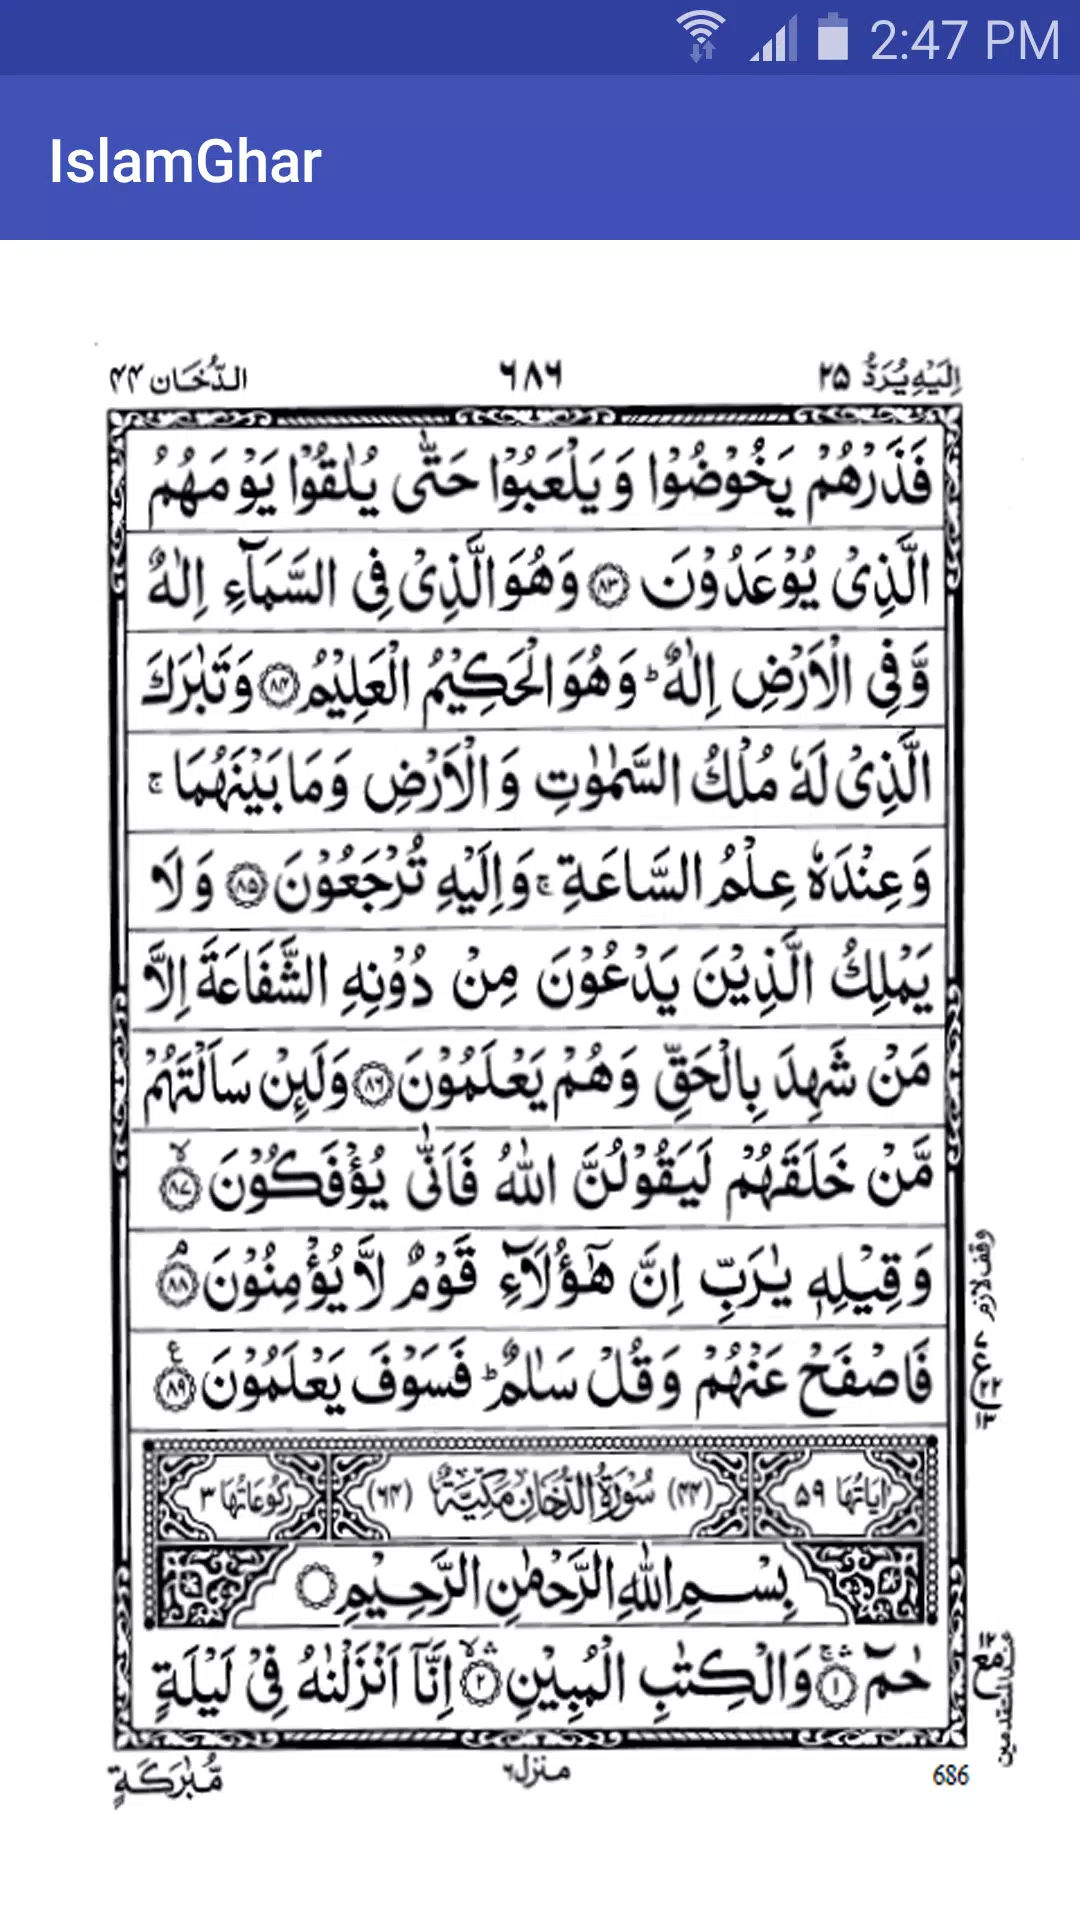 2:47 PM
IslamGhar
اِلَيْهِ يُرَدُّ ۲۵
۶۸۶
الدُّخَان ۴۴
فَذَرْهُمْ يَخُوْضُوْا وَيَلْعَبُوْا حَتّٰى يُلٰقُوْا يَوْمَهُمُ
الَّذِىْ يُوْعَدُوْنَ ۝۸۳ وَهُوَ الَّذِىْ فِى السَّمَآءِ اِلٰهٌ
وَّفِى الْاَرْضِ اِلٰهٌ ؕ وَهُوَ الْحَكِيْمُ الْعَلِيْمُ ۝۸۴ وَتَبٰرَكَ
الَّذِىْ لَهٗ مُلْكُ السَّمٰوٰتِ وَالْاَرْضِ وَمَا بَيْنَهُمَا ۚ
وَعِنْدَهٗ عِلْمُ السَّاعَةِ ۚ وَاِلَيْهِ تُرْجَعُوْنَ ۝۸۵ وَلَا
يَمْلِكُ الَّذِيْنَ يَدْعُوْنَ مِنْ دُوْنِهِ الشَّفَاعَةَ اِلَّا
مَنْ شَهِدَ بِالْحَقِّ وَهُمْ يَعْلَمُوْنَ ۝۸۶ وَلَئِنْ سَاَلْتَهُمْ
مَّنْ خَلَقَهُمْ لَيَقُوْلُنَّ اللّٰهُ فَاَنّٰى يُؤْفَكُوْنَ ۙ۝۸۷
وَقِيْلِهٖ يٰرَبِّ اِنَّ هٰٓؤُلَآءِ قَوْمٌ لَّا يُؤْمِنُوْنَ ۘ۝۸۸
وقف لازم
فَاصْفَحْ عَنْهُمْ وَقُلْ سَلٰمٌ ؕ فَسَوْفَ يَعْلَمُوْنَ ۝۸۹
ع
۲۲
۱۳
اٰيَاتُهَا ۵۹ (۴۴) سُوْرَةُ الدُّخَانِ مَكِّيَّةٌ (۶۴) رُكُوْعَاتُهَا ۳
بِسْمِ اللّٰهِ الرَّحْمٰنِ الرَّحِيْمِ
حٰمٓ ۝۱ وَالْكِتٰبِ الْمُبِيْنِ ۝۲ اِنَّآ اَنْزَلْنٰهُ فِىْ لَيْلَةٍ
۱۲
مع
عند المتقدمين
مُّبٰرَكَةٍ
منزل ۶
686